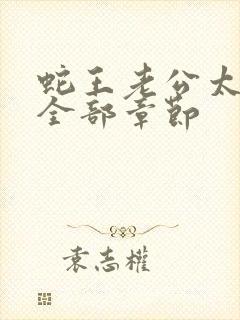 蛇王老公太
全部章節
袁志權